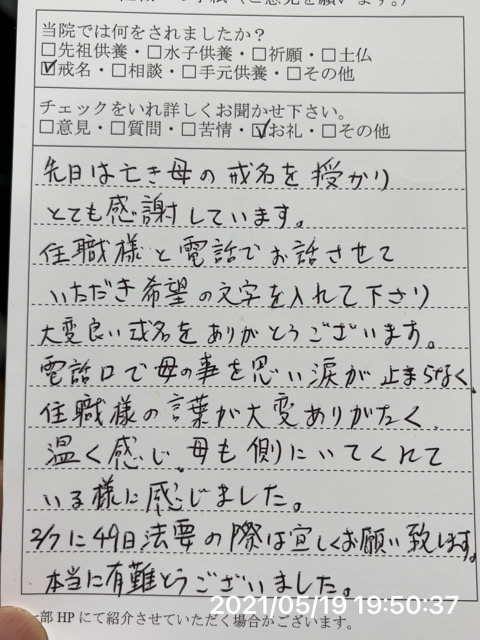 のお手紙（ご意見を願います。）
当院では何をされましたか？
□先祖供養・□水子供養・□祈願・□土仏
☑戒名・□相談・□手元供養・□その他
チェックをいれ詳しくお聞かせ下さい。
□意見・□質問・□苦情・☑お礼・□その他
先日は亡き母の戒名を授かり
とても感謝しています。
住職様と電話でお話させて
いただき希望の文字を入れて下さり
大変良い戒名をありがとうございます。
電話口で母の事を思い涙が止まらなく、
住職様の言葉が大変ありがたく、
温く感じ、母も側にいてくれて
いる様に感じました。
2/7に49日法要の際は宜しくお願い致します。
本当に有難とうございました。
一部HPにて紹介させていただく場合がございます。
2021/05/19 19:50:37